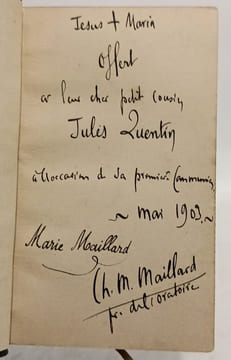 Jesus + Maria
Offert
à leur cher petit cousin
Jules Quentin
à l'occasion de sa première Communion
~ mai 1903. ~
Marie Maillard
Ch. M. Maillard
pr. de l'oratoire